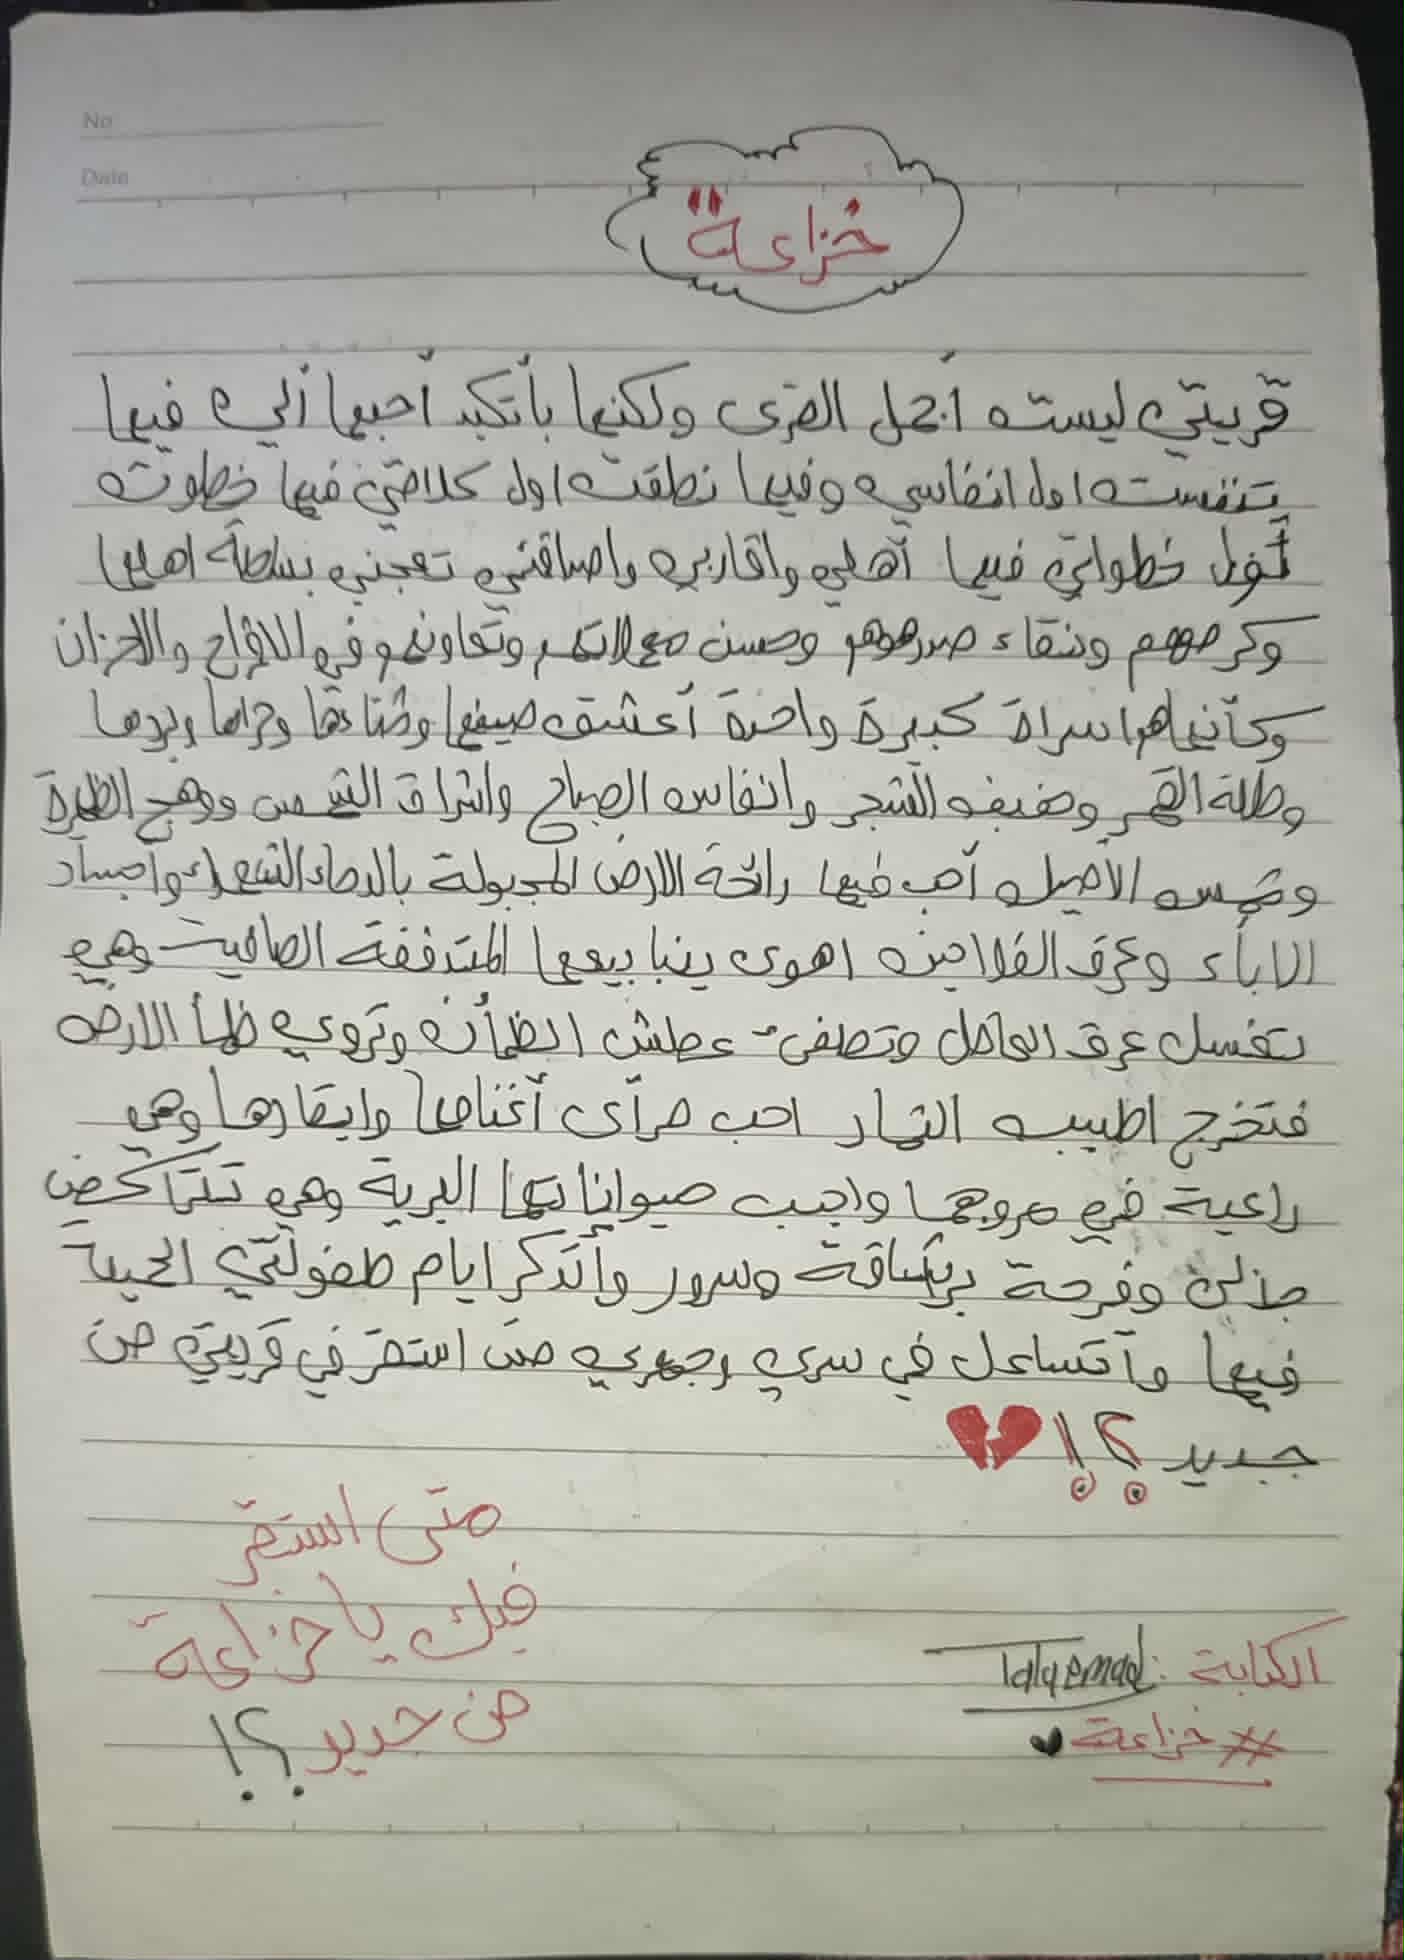 No
Date
خزاعة
قريتي ليست أجمل القرى ولكنها بأتكيد أحبها ألي فيها
تنفست اول انفاسي وفيها نطقت اول كلامي فيها خطوت
أول خطواتي فيها أهلي واقاربي واصداقئي تعجبني بساطة اهلها
وكرمهم ونقاء صدرهوهم وحسن معملاتهم وتعاونهم في الافراح والاحزان
وكأنها اسراة كبيرة واحدة أعشق صيفها وشتاءها وحراها وبردها
وطلة القمر وحفيف الشجر وانفاس الصباح واشراق الشمس ووهج الظهيرة
وشمس الأصيل أحب فيها رائحة الارض المجبولة بالدماء الشهداء واجساد
الاباء وعرق الفلاحين اهوى ينبابيعها المتدفقة الصافيت وهي
تغسل عرق العامل وتطفئ عطش الظمأن وتروي ظمأ الارض
فتخرج اطيب الثمار احب مرأى أغنامها وابقارها وهي
راعية في مروجها واحب حيواناتها البرية وهي تتراكض
جذلى وفرحة برشاقة وسرور وأتذكر ايام طفولتي الحبيبة
فيها وأتساءل في سري وجهري متى استقر في قريتي من
جديد ؟!
متى استقر
فيك يا خزاعة
من جديد ؟!
الكتابة : Talaemad
#خزاعة